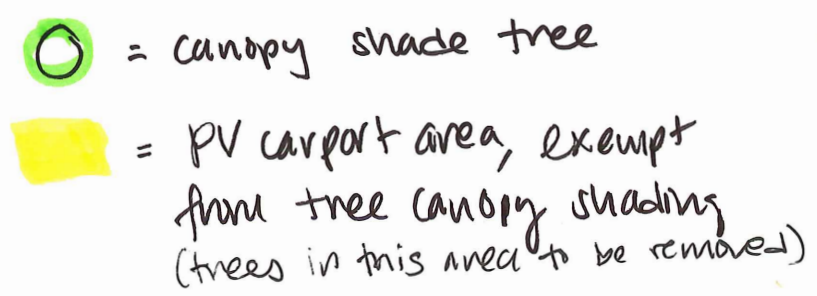 = canopy shade tree
= PV carport area, exempt
from tree canopy shading
(trees in this area to be removed)